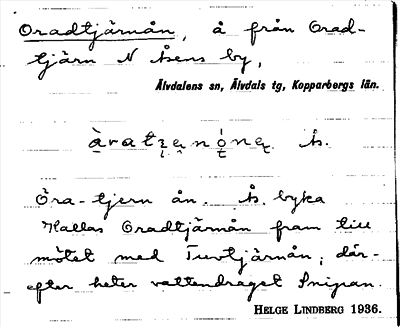 Oradtjärnån, å från Orad-
tjärn N Åsens by,
Älvdalens sn, Älvdals tg, Kopparbergs län.
Ås.
Öra-tjern ån. Ås. byka
Kallas Oradtjärnån fram till
mötet med Tuvtjärnån; där-
efter heter vattendraget Snigan.
HELGE LINDBERG 1936.